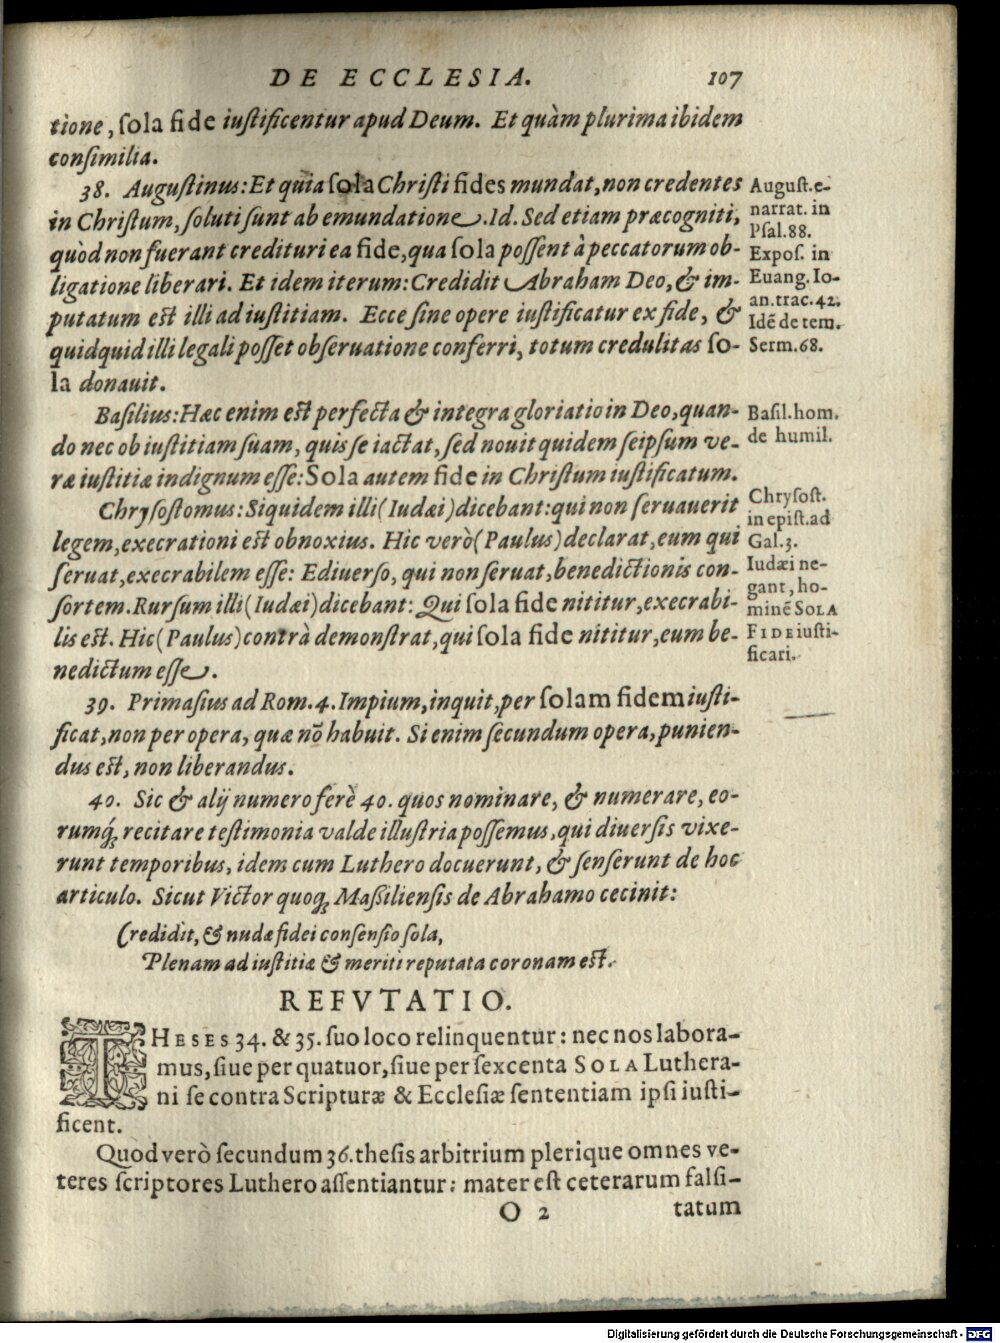 DE ECCLESIA. 107
tione, sola fide iustificentur apud Deum. Et quàm plurima ibidem
consimilia.
38. Augustinus: Et quia sola Christi fides mundat, non credentes
in Christum, soluti sunt ab emundatione. Id. Sed etiam præcogniti,
quòd non fuerant credituri ea fide, qua sola possent à peccatorum ob-
ligatione liberari. Et idem iterum: Credidit Abraham Deo, & im-
putatum est illi ad iustitiam. Ecce sine opere iustificatur ex fide, &
quidquid illi legali posset obseruatione conferri, totum credulitas so-
la donauit.
August. e-
narrat. in
Psal. 88.
Expos. in
Euang. Io-
an. trac. 42.
Idē de tem.
Serm. 68.
Basilius: Hæc enim est perfecta & integra gloriatio in Deo, quan-
do nec ob iustitiam suam, quis se iactat, sed nouit quidem seipsum ve-
ræ iustitiæ indignum esse: Sola autem fide in Christum iustificatum.
Basil. hom.
de humil.
Chrysostomus: Siquidem illi (Iudæi) dicebant: qui non seruauerit
legem, execrationi est obnoxius. Hic verò (Paulus) declarat, eum qui
seruat, execrabilem esse: E diuerso, qui non seruat, benedictionis con-
sortem. Rursum illi (Iudæi) dicebant: Qui sola fide nititur, execrabi-
lis est. Hic (Paulus) contrà demonstrat, qui sola fide nititur, eum be-
nedictum esse.
Chrysost.
in epist. ad
Gal. 3.
Iudæi ne-
gant, ho-
minē SOLA
FIDE iusti-
ficari.
39. Primasius ad Rom. 4. Impium, inquit, per solam fidem iusti-
ficat, non per opera, quæ nō habuit. Si enim secundum opera, punien-
dus est, non liberandus.
40. Sic & alij numero ferè 40. quos nominare, & numerare, eo-
rumq́; recitare testimonia valde illustria possemus, qui diuersis vixe-
runt temporibus, idem cum Luthero docuerunt, & senserunt de hoc
articulo. Sicut Victor quoq; Massiliensis de Abrahamo cecinit:
Credidit, & nudæ fidei consensio sola,
Plenam ad iustitiæ & meriti reputata coronam est.
REFVTATIO.
THESES 34. & 35. suo loco relinquentur: nec nos labora-
mus, siue per quatuor, siue per sexcenta SOLA Luthera-
ni se contra Scripturæ & Ecclesiæ sententiam ipsi iusti-
ficent.
Quòd verò secundum 36. thesis arbitrium plerique omnes ve-
teres scriptores Luthero assentiantur: mater est ceterarum falsi-
O 2 tatum
Digitalisierung gefördert durch die Deutsche Forschungsgemeinschaft - DFG